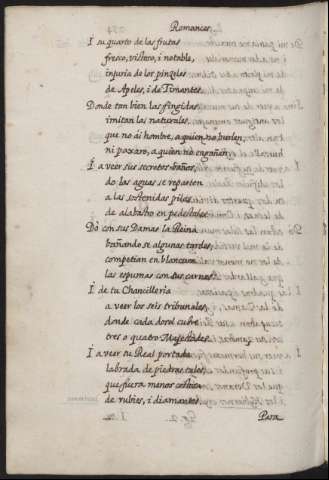 Romances.
I su quarto de las frutas
fresco, vistoso, i notable,
injuria de los pinzeles
de Apeles, i de Timantes.
Donde tan bien las fingidas
imitan las naturales,
que no ái hombre, a quien no burlen,
ni paxaro, a quien no engañen.
I a veer sus secretos baños,
do las aguas se reparten
a las sostenidas pilas
de alabastro en pedestales.
Dò con sus Damas la Reina
bañando se algunas tardes,
competian en blancura
las espumas con sus carnes.
I de tu Chancilleria
a veer los seis tribunales,
donde cada dosel cubre
tres o quatro Majestades.
I a veer tu Real portada
labrada de piedras tales,
que fuera menos costosa
de rubies, i diamantes.
Para